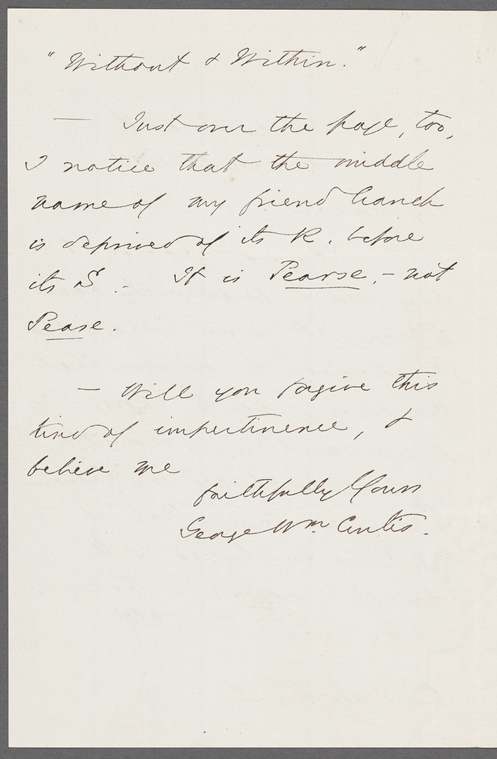 "Without & Within."
— Just over the page, too,
I notice that the middle
name of my friend Cranch
is deprived of its R. before
its S. — It is Pearse, — not
Pease.
— Will you forgive this
kind of impertinence, &
believe me
faithfully Yours
George Wm Curtis.